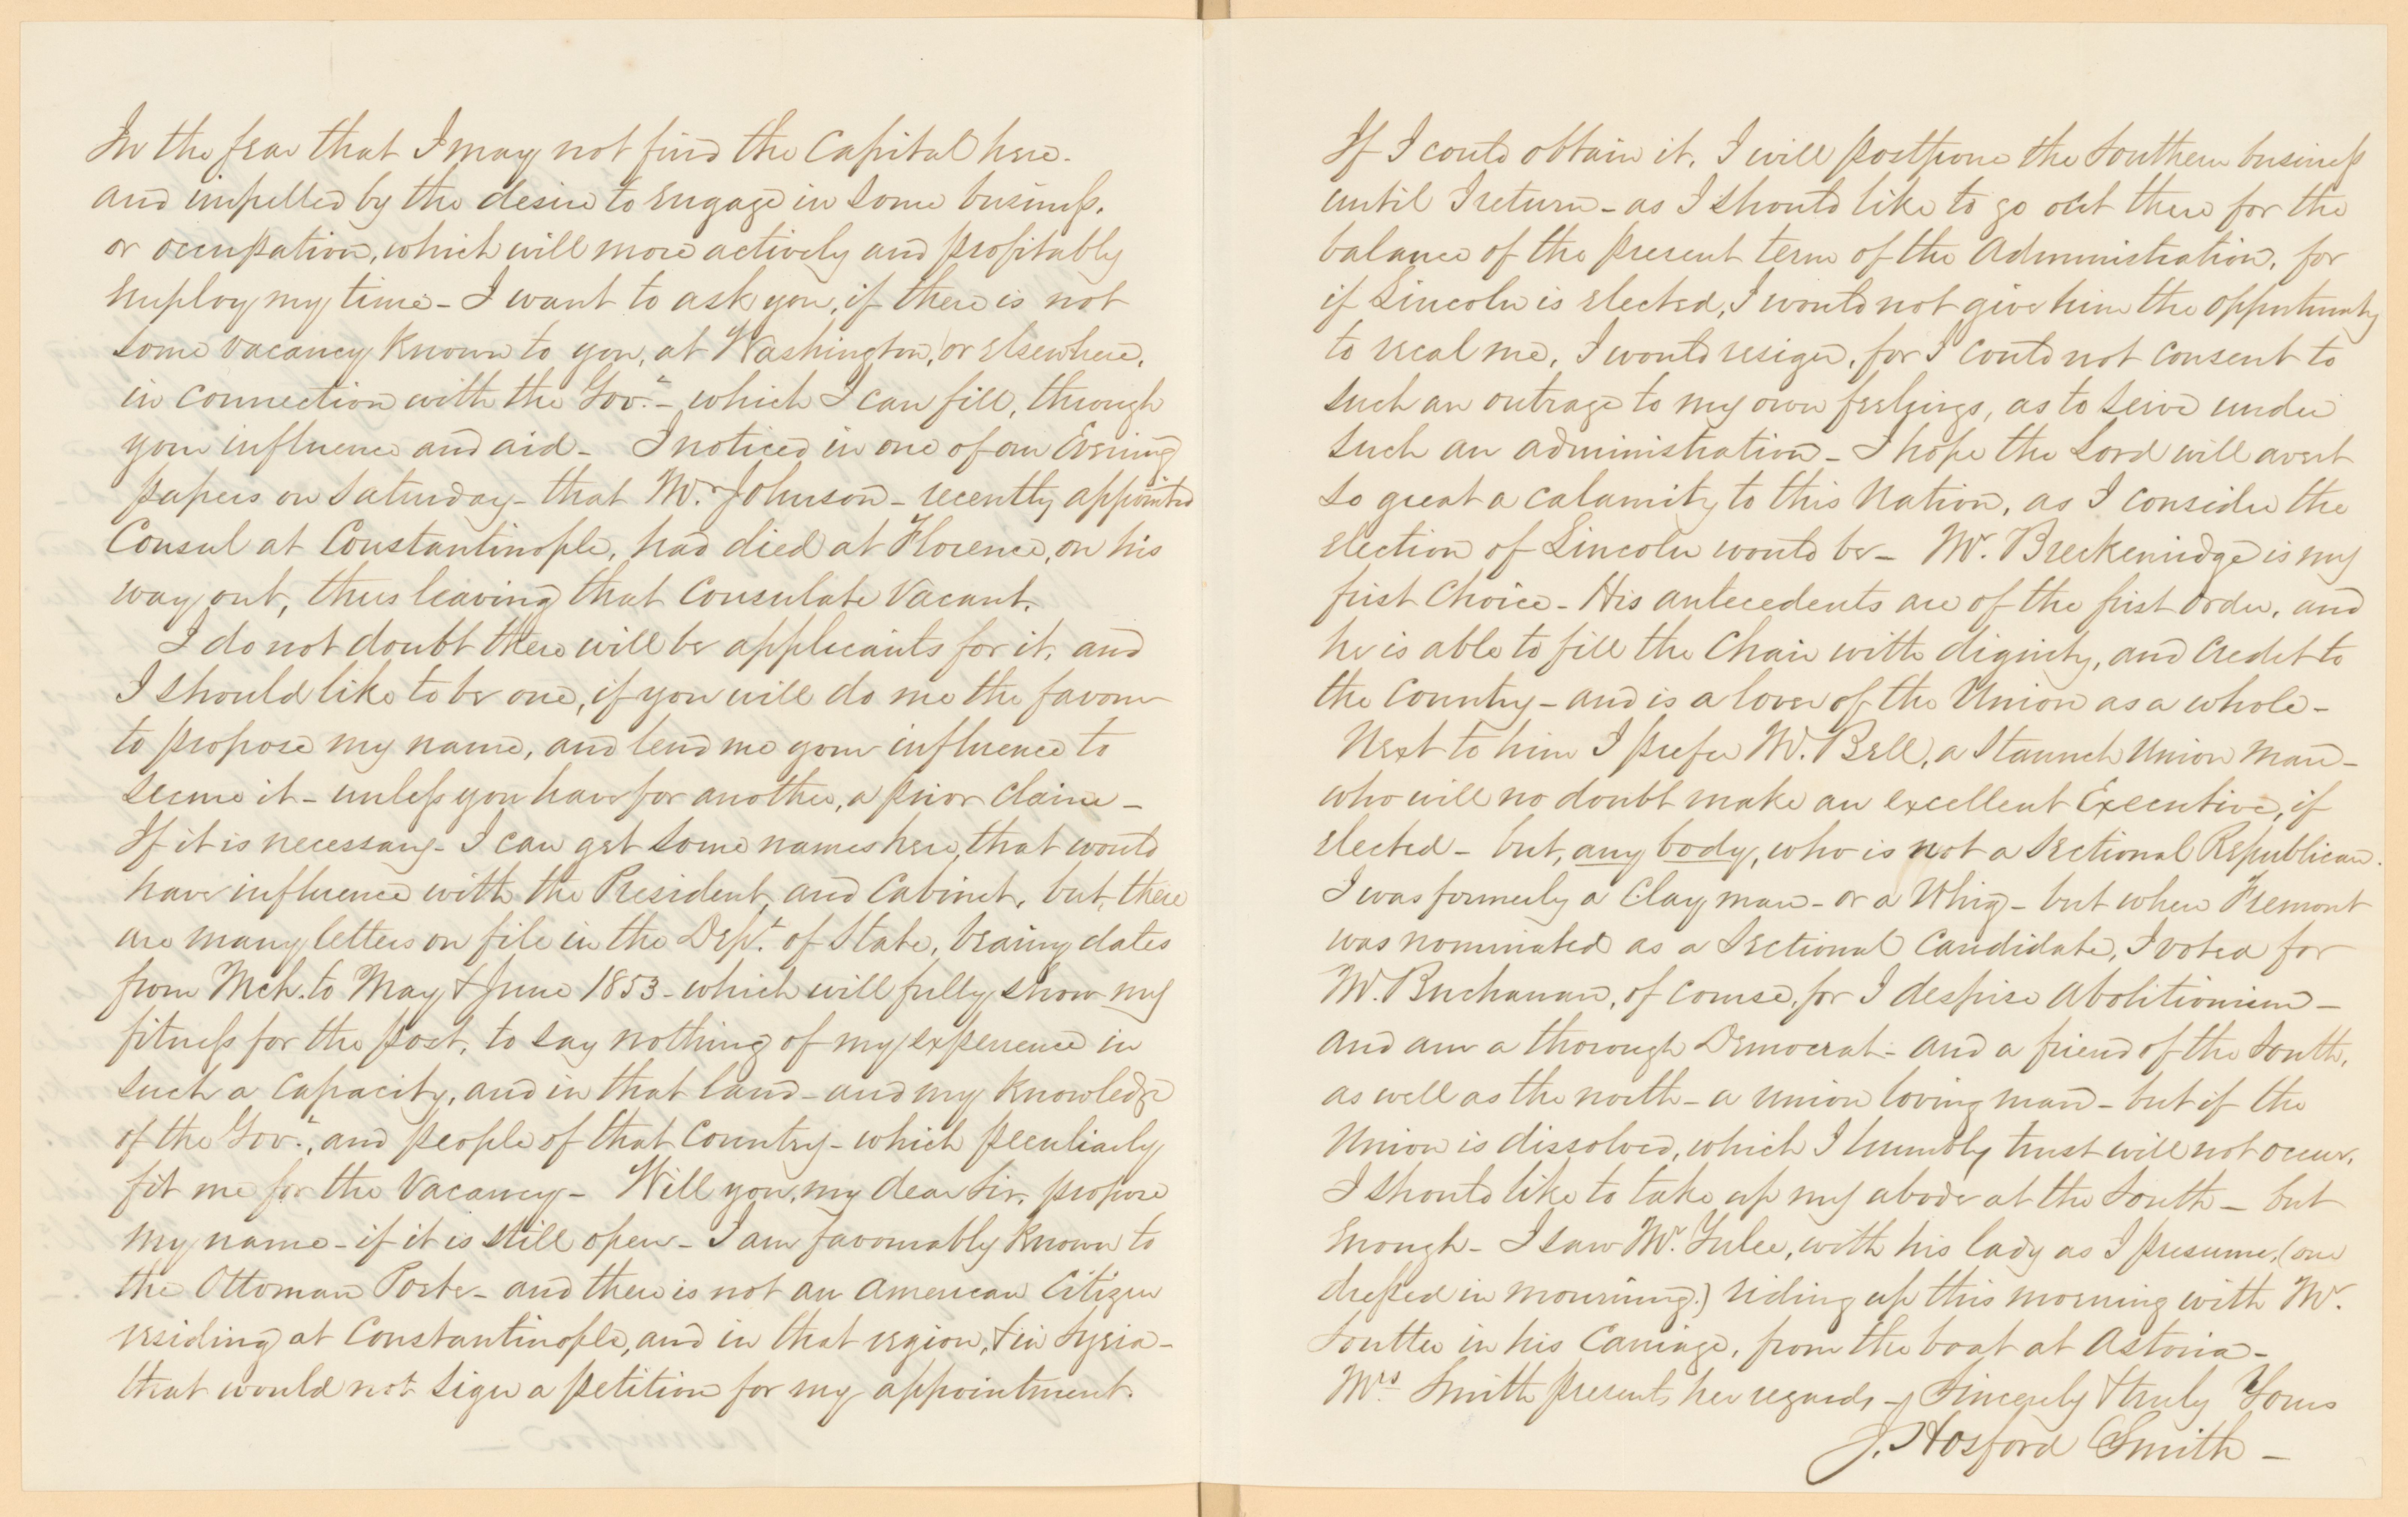 In the fear that I may not find the Capital here.
and impelled by the desire to engage in some business,
or occupation, which will more actively and profitably
employ my time - I want to ask you, if there is not
some vacancy known to you, at Washington, or elsewhere,
in connection with the Gov.t - which I can fill, through
your influence and aid - I noticed in one of our Evening
papers on Saturday - that Mr. Johnson - recently appointed
Consul at Constantinople, had died at Florence, on his
way out, thus leaving that Consulate Vacant.
I do not doubt there will be applicants for it, and
I should like to be one, if you will do me the favour
to propose my name, and lend me your influence to
secure it - unless you have for another, a prior claim -
If it is necessary - I can get some names here, that would
have influence with the President, and Cabinet, but, there
are many letters on file in the Dept. of State, bearing dates
from Mch. to May & June 1853 - which will fully show my
fitness for the post, to say nothing of my experience in
such a capacity, and in that land - and my knowledge
of the Gov.t, and people of that Country - which peculiarly
fit me for the Vacancy - Will you, my dear Sir, propose
my name - if it is still open - I am favourably known to
the Ottoman Porte - and there is not an American Citizen
residing at Constantinople, and in that region, & in Syria -
that would not sign a petition for my appointment.
If I could obtain it, I will postpone the Southern business
until I return - as I should like to go out there for the
balance of the present term of the Administration, for
if Lincoln is elected, I would not give him the opportunity
to recal me, I would resign, for I could not consent to
such an outrage to my own feelings, as to serve under
such an administration - I hope the Lord will avert
so great a calamity to this Nation, as I consider the
election of Lincoln would be - Mr. Breckenridge is my
first choice - His antecedents are of the first order, and
he is able to fill the Chair with dignity, and credit to
the Country - and is a lover of the Union as a whole -
Next to him I prefer Mr. Bell, a Staunch Union man -
who will no doubt make an excellent Executive, if
elected - but, any body, who is not a Sectional Republican.
I was formerly a Clay man - or a Whig - but when Fremont
was nominated as a Sectional Candidate, I voted for
Mr. Buchanan, of course, for I despise Abolitionism -
and am a thorough Democrat - and a friend of the South,
as well as the north - a union loving man - but if the
Union is dissolved, which I humbly trust will not occur,
I should like to take up my abode at the South - but
enough - I saw Mr. Yulee, with his lady as I presume, (one
dressed in mourning.) riding up this morning with Mr.
Soutter in his Carriage, from the boat at Astoria -
Mrs. Smith presents her regards - Sincerely & truly Yours
J. Hosford Smith -